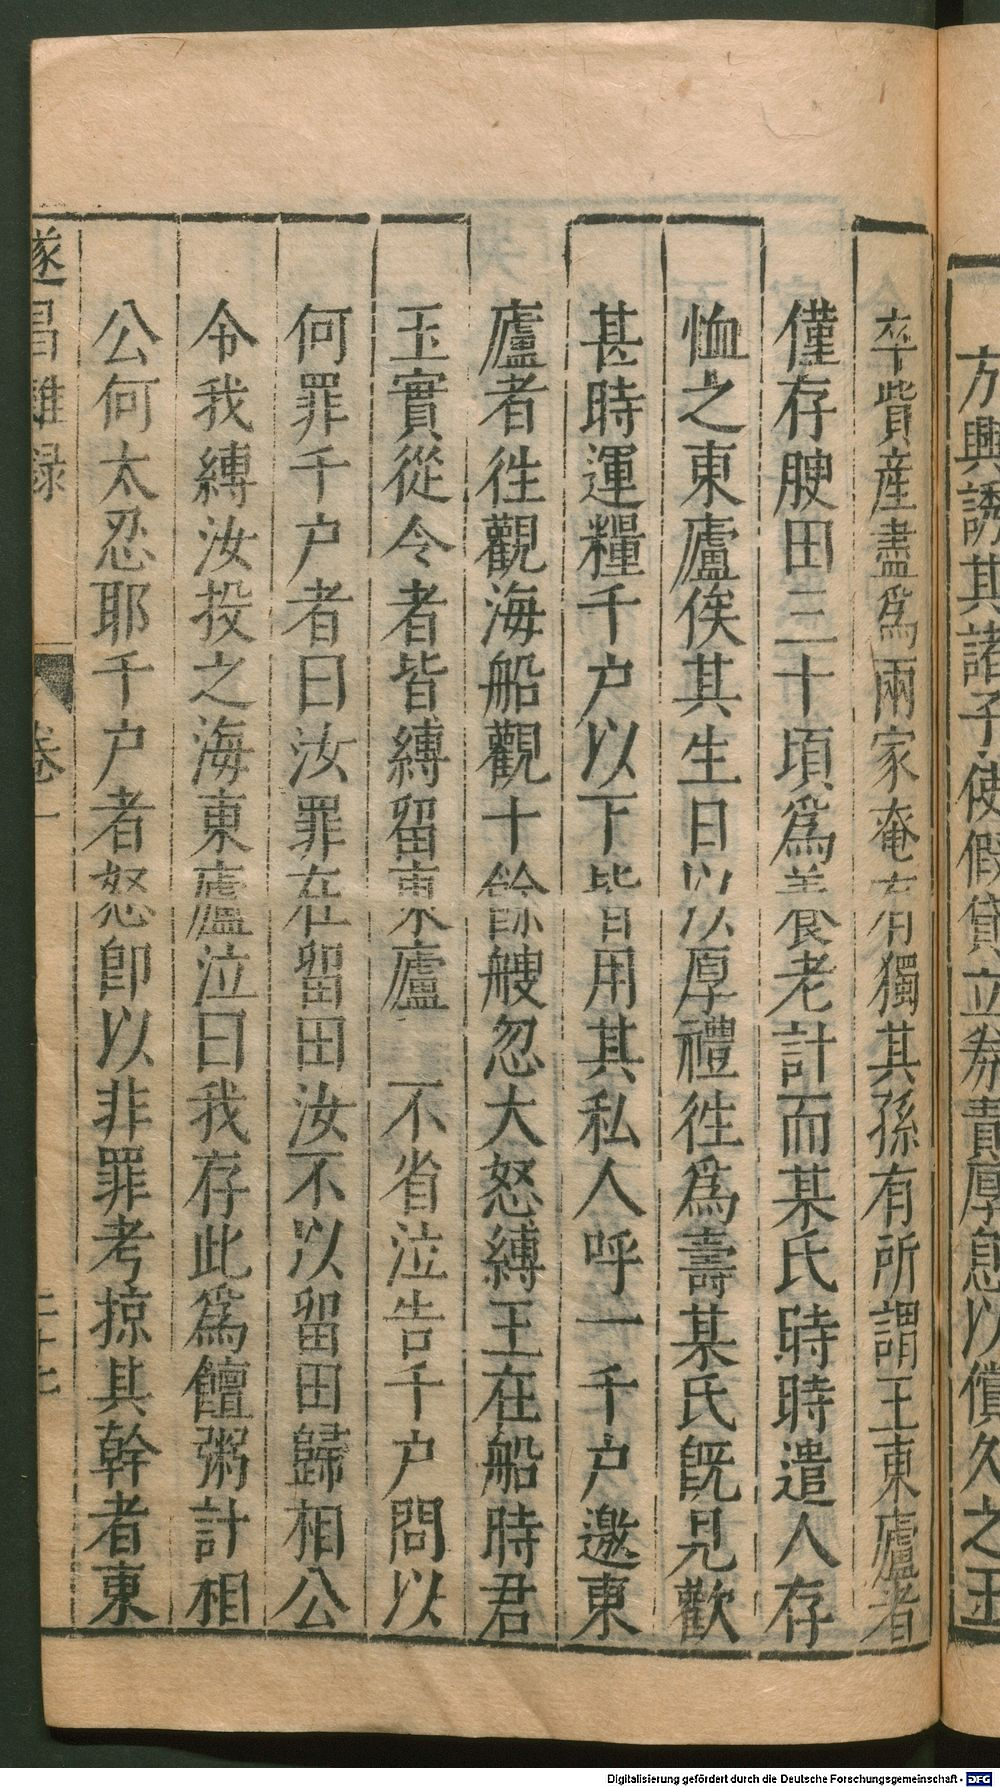 方興誘其諸子使假貸立券責厚息以償久之王
卒貲産盡爲兩家奄有獨其孫有所謂王東廬者
僅存腴田三十頃爲養老計而某氏時時遣人存
恤之東廬俟其生日以厚禮徃爲壽某氏旣見歡
甚時運糧千户以下皆用其私人呼一千户邀東
廬者徃觀海船觀十餘艘忽大怒縛王在船時君
玉實從令者皆縛留東廬 不省泣告千户問以
何罪千户者曰汝罪在留田汝不以留田歸相公
令我縛汝投之海東廬泣曰我存此爲饘粥計相
公何太忍耶千户者怒卽以非罪考掠其幹者東
遂昌雜録 卷一 二十七
Digitalisierung gefördert durch die Deutsche Forschungsgemeinschaft - DFG